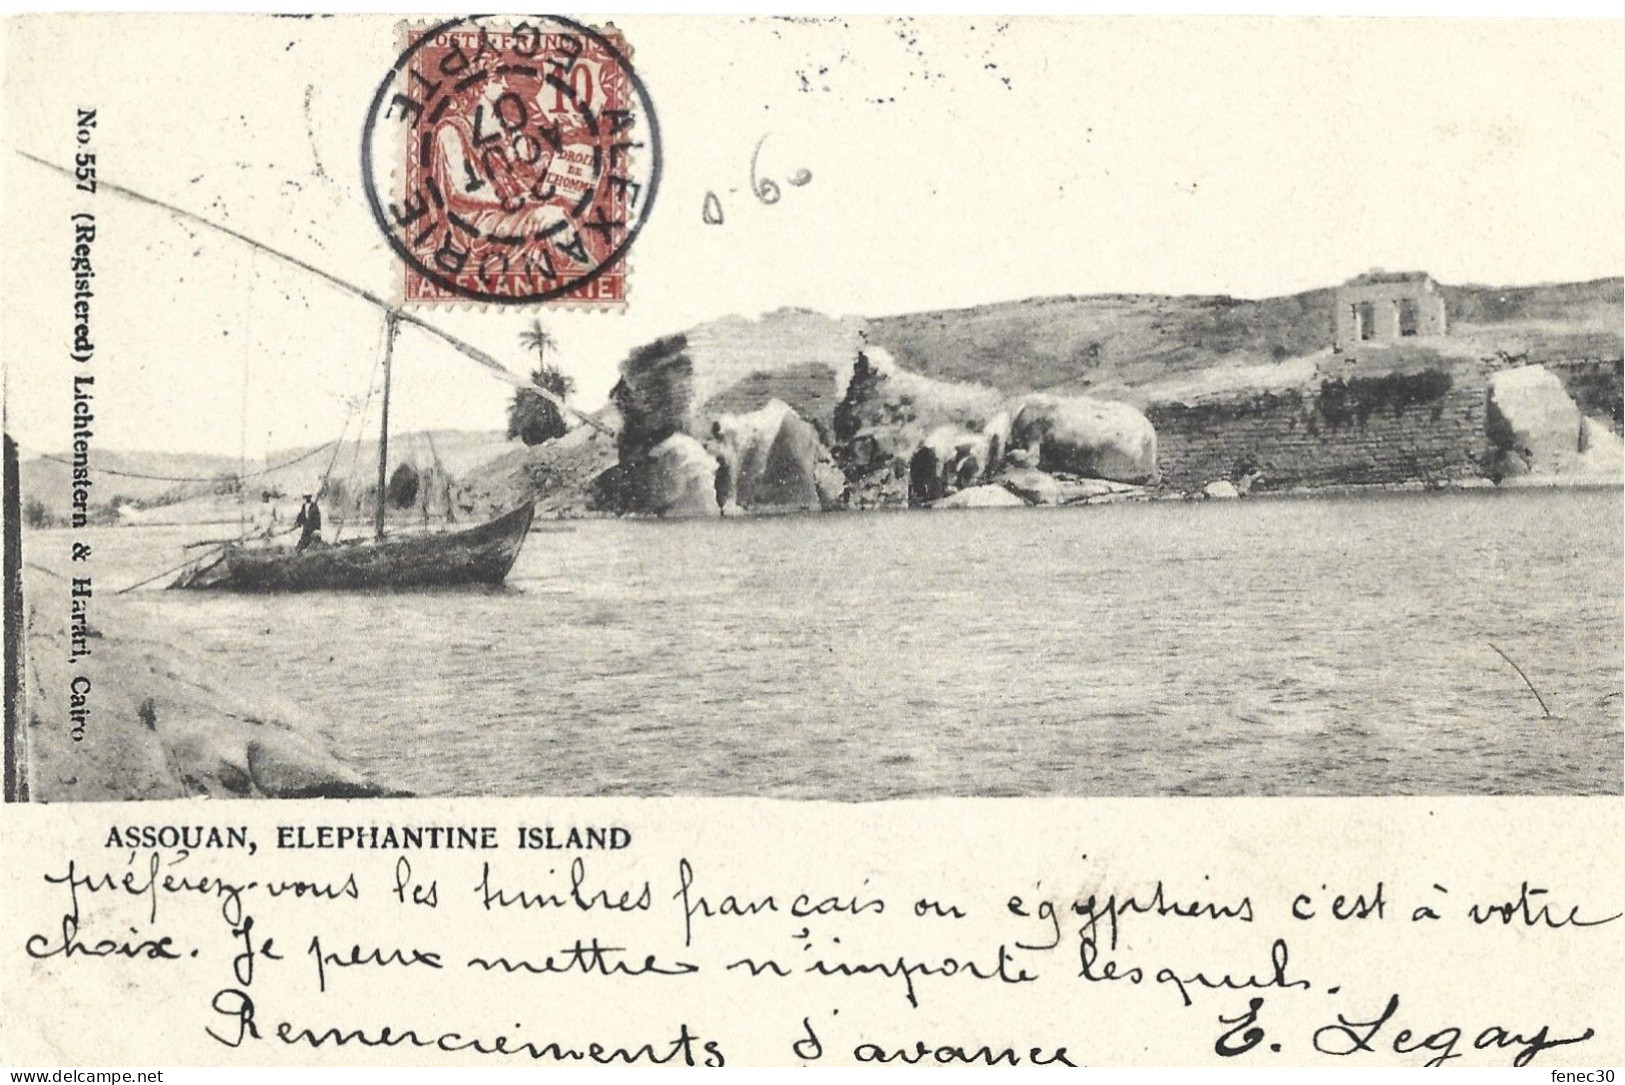 POSTE FRANÇAISE
10
DROITS
DE
L'HOMME
ALEXANDRIE
ALEXANDRIE
EGYPTE
AOUT
07
0-60
No. 557 (Registered) Lichtenstern & Harari, Cairo
ASSOUAN, ELEPHANTINE ISLAND
préférez-vous les timbres français ou égyptiens c'est à votre
choix. Je peux mettre n'importe lesquels.
Remerciements d'avance E. Legay
fenec30